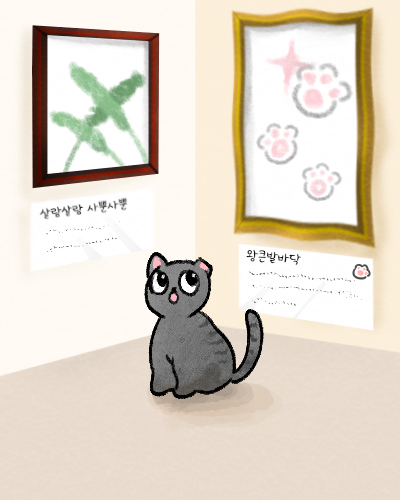 살랑살랑 사뿐사뿐
왕큰발바닥